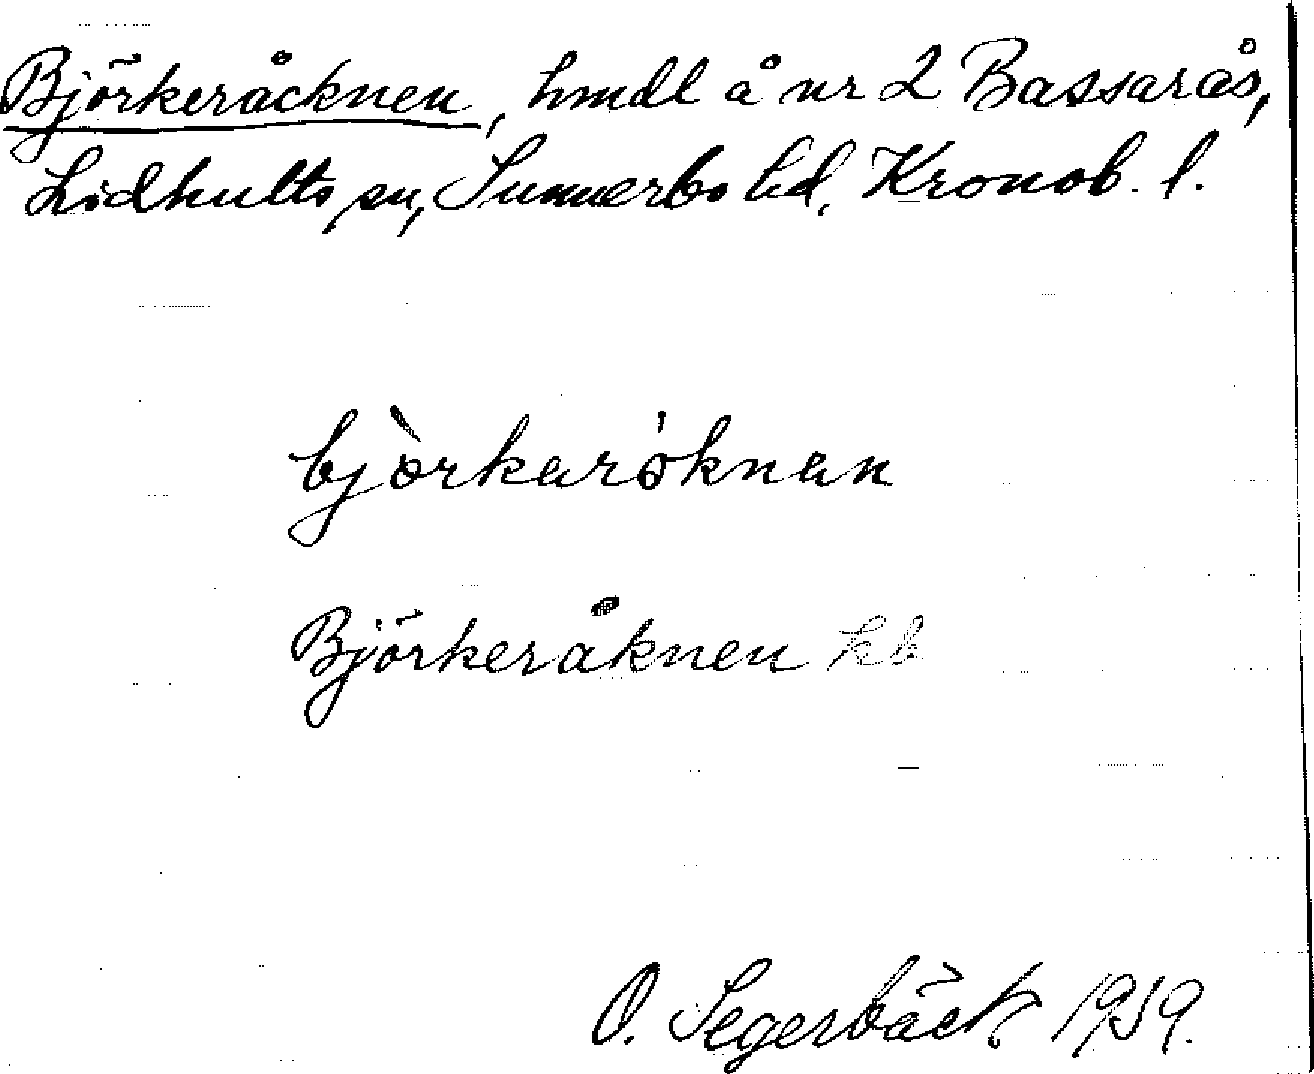 Björkeråcknen, hmdl å nr 2 Bassarås,
Lidhults sn, Sunnerbo hd, Kronob. l.
bjòrkaróknan
Björkeråknen kb
O. Segerbäck 1919.